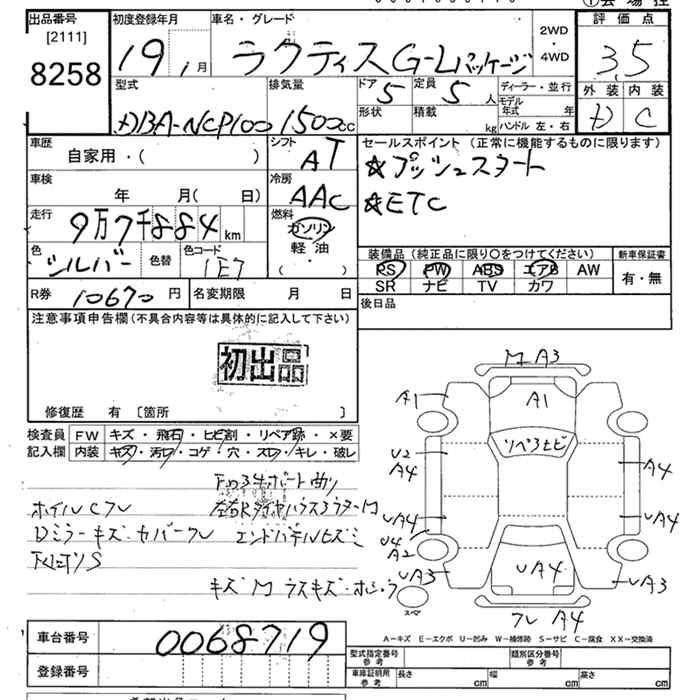 出品番号 [2111] 8258
初度登録年月 19 1月
車名・グレード ラクティス G-Lパッケージ
2WD・4WD
評価点 3.5
型式 DBA-NCP100
排気量 1500cc
ドア 5 形状
定員 5人 積載 kg
ディーラー・並行
モデル年式 年
ハンドル 左・右
外装 D 内装 C
車歴 自家用・( )
シフト AT
車検 年 月( 日)
冷房 AAC
走行 9万7千884km
燃料 ガソリン 軽油 ( ・ )
色 シルバー 色替 色コード 1E7
R券 10670円 名変期限 月 日
セールスポイント (正常に機能するものに限ります)
☆プッシュスタート
☆ETC
装備品 (純正品に限り○をつけてください) 新車保証書
PS PW ABS エアB AW 有・無
SR ナビ TV カワ
後日品
注意事項申告欄(不具合内容等は具体的に記入して下さい)
初出品
修復歴 有 [箇所 ]
検査員 FW キズ・飛石・ヒビ割・リペア跡・×要
記入欄 内装 キズ・汚レ・コゲ・穴・スレ・キレ・破レ
ホイルCフレ
Dミラーキズ・カバーフレ
M A3
A1
A1
リペアヒビ
U2
A4
A4
UA4
UA4
U4
A2
UA3
UA4
UA3
スペア
フレ A4
A-キズ E-エクボ U-凹み W-補修跡 S-サビ C-腐食 XX-交換済
車台番号 0068719
登録番号
型式指定番号 参考
類別区分番号 参考
車庫証明用 参考 長さ cm 幅 cm 高さ cm